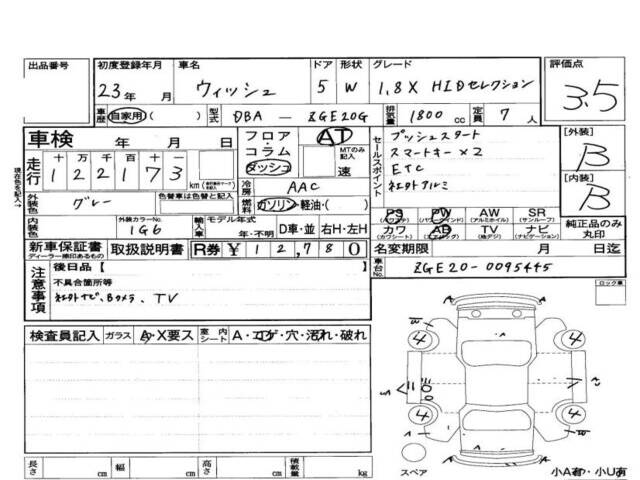 出品番号 初度登録年月 車名 ドア 形状 グレード 評価点
23年 月 ウィッシュ 5 W 1.8X HIDセレクション 3.5
車歴 自家用 ( ) 型式 DBA - ZGE20G 排気量 1800 cc 定員 7 人
車検 年 月 日
フロア・コラム ダッシュ AT MTのみ記入 速
走行 十 万 千 百 十
1 2 2 1 7 3 km
現在色を記入→
セールスポイント
プッシュスタート
スマートキー×2
ETC
社外アルミ
[外装] B
[内装] B
外装色 グレー 色替車は色替と記入
冷房 AAC
燃料 ガソリン・軽油・( )
内装色 外装カラーNo. 1G6 輸入車 モデル年式 年・不明 D車・並 右H・左H
PS PW AW SR
(パワステ) (パワーウインド) (アルミホイル) (サンルーフ)
カワ AB TV ナビ
(カワシート) (エアバッグ) (地デジ) (ナビゲーション)
純正品のみ丸印
新車保証書 取扱説明書 R券 ¥ 12,780
ディーラー捺印あるもの
名変期限 月 日迄
車台No. ZGE20-0095445
注意事項
後日品【
不具合箇所等
社外ナビ、Bカメラ、TV
ロック車
検査員記入 ガラス A・X要ス 室内 シート A・コゲ・穴・汚れ・破れ
A A
W
4 4
4 4
W
A
スペア
小A有・小U有
長さ cm 幅 cm 高さ cm 積載量 kg